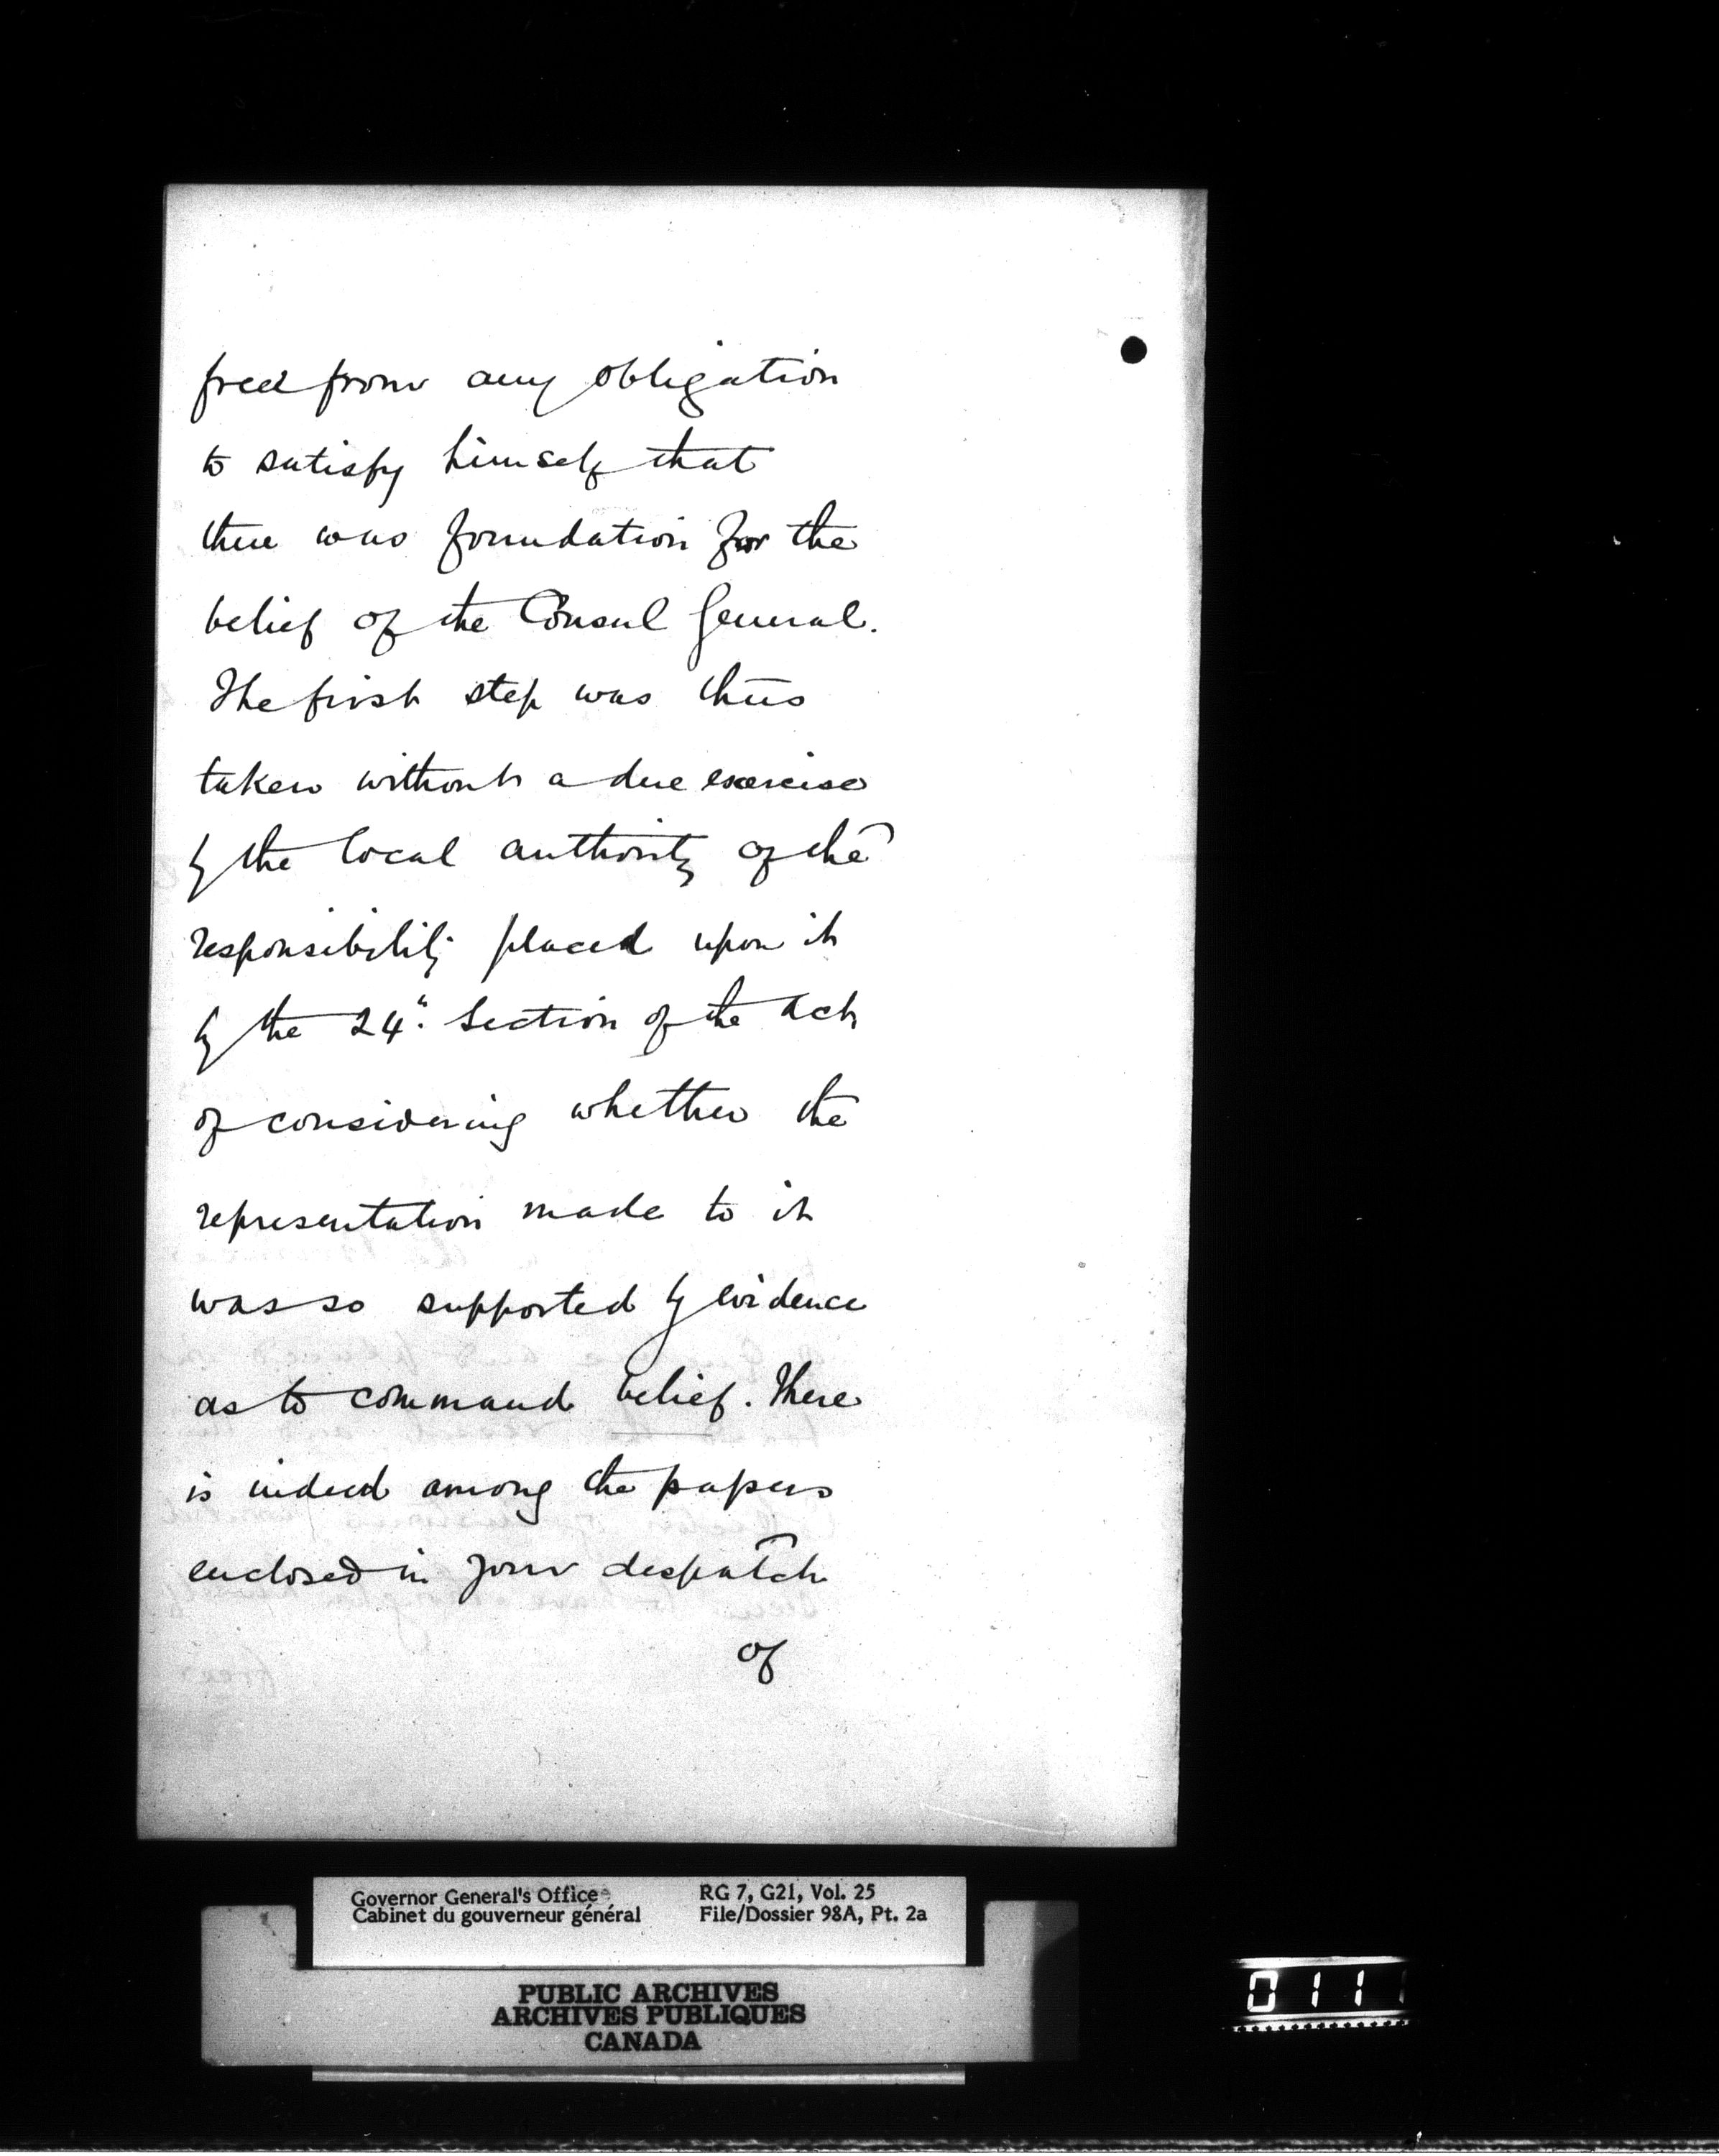 freed from any obligation
to satisfy himself that
there was foundation for the
belief of the Consul General.
The first step was thus
taken without a due exercise
by the local authority of the
responsibility placed upon it
by the 24" Section of the Act
of considering whether the
representation made to it
was so supported by evidence
as to command belief. There
is indeed among the papers
enclosed in your despatch
of
Governor General's Office RG 7, G21, Vol. 25
Cabinet du gouverneur général File/Dossier 98A, Pt. 2a
PUBLIC ARCHIVES
ARCHIVES PUBLIQUES
CANADA
0111